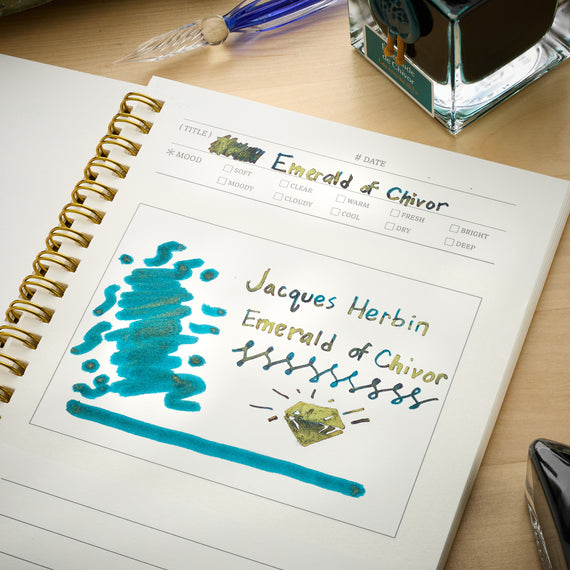 (TITLE) Emerald of Chivor
# DATE
*MOOD
SOFT CLEAR WARM FRESH BRIGHT
MOODY CLOUDY COOL DRY DEEP
Jacques Herbin
Emerald of Chivor
de Chivor